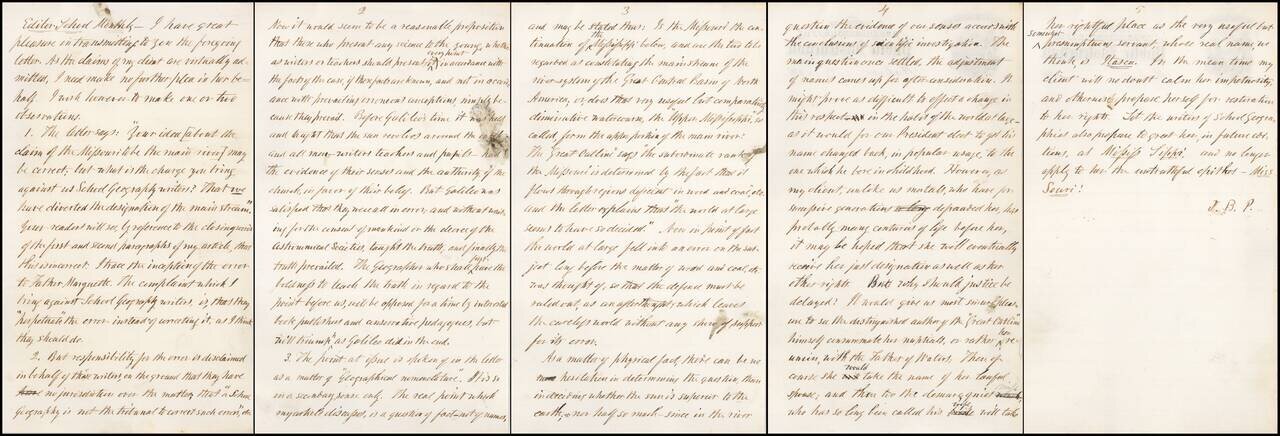 Editor, School Monthly – I have great
pleasure in transmitting to you the foregoing
letter. As the claims of my client are virtually ad-
mitted, I need make no further plea in her be-
half. I wish however to make one or two
observations.
1. The letter says: "Your idea [about the
claim of the Missouri to be the main river] may
be correct; but what is the charge you bring
against us School Geography writers? That we
have diverted the designation of the main stream."
Your readers will see, by reference to the closing
of the first and second paragraphs of my article, that
this is incorrect. I trace the inception of the error
to Father Marquette. The complaint which I
bring against School Geography writers, is, that they
"perpetuate" the error instead of correcting it, as I think
they should do.
2. But responsibility for the error is disclaimed
in behalf of these writers, on the ground that they have
no jurisdiction over the matter; that "a School
Geography is not the tribunal to correct such errors," &c
2
Now it would seem to be a reasonable proposition
that those who present any science to the young, whether
as writers or teachers should present it in accordance with
the facts of the case if those facts are known, and not in accord-
ance with prevailing erroneous conceptions, simply be-
cause they prevail. Before Galileo's time it was held
and taught that the sun revolves around the
and all men, writers teachers and pupils had
the evidence of their senses and the authority of the
church, in favor of this belief. But Galileo was
satisfied that they were all in error, and without wait-
ing for the consent of mankind or the decree of the
Astronomical Societies, taught the truth, and finally the
truth prevailed. The Geographer who shall first have the
boldness to teach the truth in regard to the
point before us, will be opposed for a time by interested
book publishers and conservative pedagogues, but
will triumph, as Galileo did in the end.
3. The point at issue is spoken of in the letter
as a matter of "Geographical nomenclature". It is so
in a secondary sense only. The real point which
my article discusses, is a question of fact – not of names,
3
and may be stated thus: Is the Missouri the con-
tinuation of the Mississippi below, and are the two to be
regarded as constituting the main stream of the
river system of the Great Central Basin of North
America, or does that very useful but comparatively
diminutive watercourse, the "Upper Mississippi," so
called, form the upper portion of the main river?
The "Great Outline" says "the subordinate rank of
the Missouri" is determined by the fact that it
flows through regions deficient in wood and coal, etc.
and the letter explains that "the world at large
seems to have so decided". Now in point of fact
the world at large fell into an error on the sub-
ject long before the matter of wood and coal, etc.
was thought of, so that the defence must be
ruled out, as an afterthought, which leaves
the careless world without any show of support
for its error.
As a matter of physical fact, there can be no
more hesitation in determining the question, than
in deciding whether the sun is superior to the
earth, – nor half so much – since in the river
4
question the evidence of our senses accords with
the conclusions of scientific investigation. The
main question once settled, the adjustment
of names comes up for after consideration. It
might prove as difficult to effect a change in
this respect in the habit of the world at large
as it would for our President elect to get his
name changed back, in popular usage, to the
one which he bore in childhood. However, as
my client, unlike us mortals, who have for
some five generations defrauded her, has
probably many centuries of life before her,
it may be hoped that she will eventually
receive her just designation as well as her
other rights. But why should justice be
delayed? It would give us most sincere pleas-
ure to see the distinguished author of the "Great Outline"
himself consummate her nuptials, or rather her re-
union, with the Father of Waters. Then of
course she would take the name of her lawful
spouse, and then too the demure, quiet
who has so long been called his wife will take
5
her rightful place as the very useful but
somewhat presumptuous servant, whose real name, we
think, is Rasca. In the mean time my
client will no doubt calm her impetuosity,
and otherwise prepare herself for restoration
to her rights. Let the writers of School Geogra-
phies also prepare to greet her, in future edi-
tions, as Missis Sippi, and no longer
apply to her the untruthful epithet – Miss
Souri!
J. B. P.